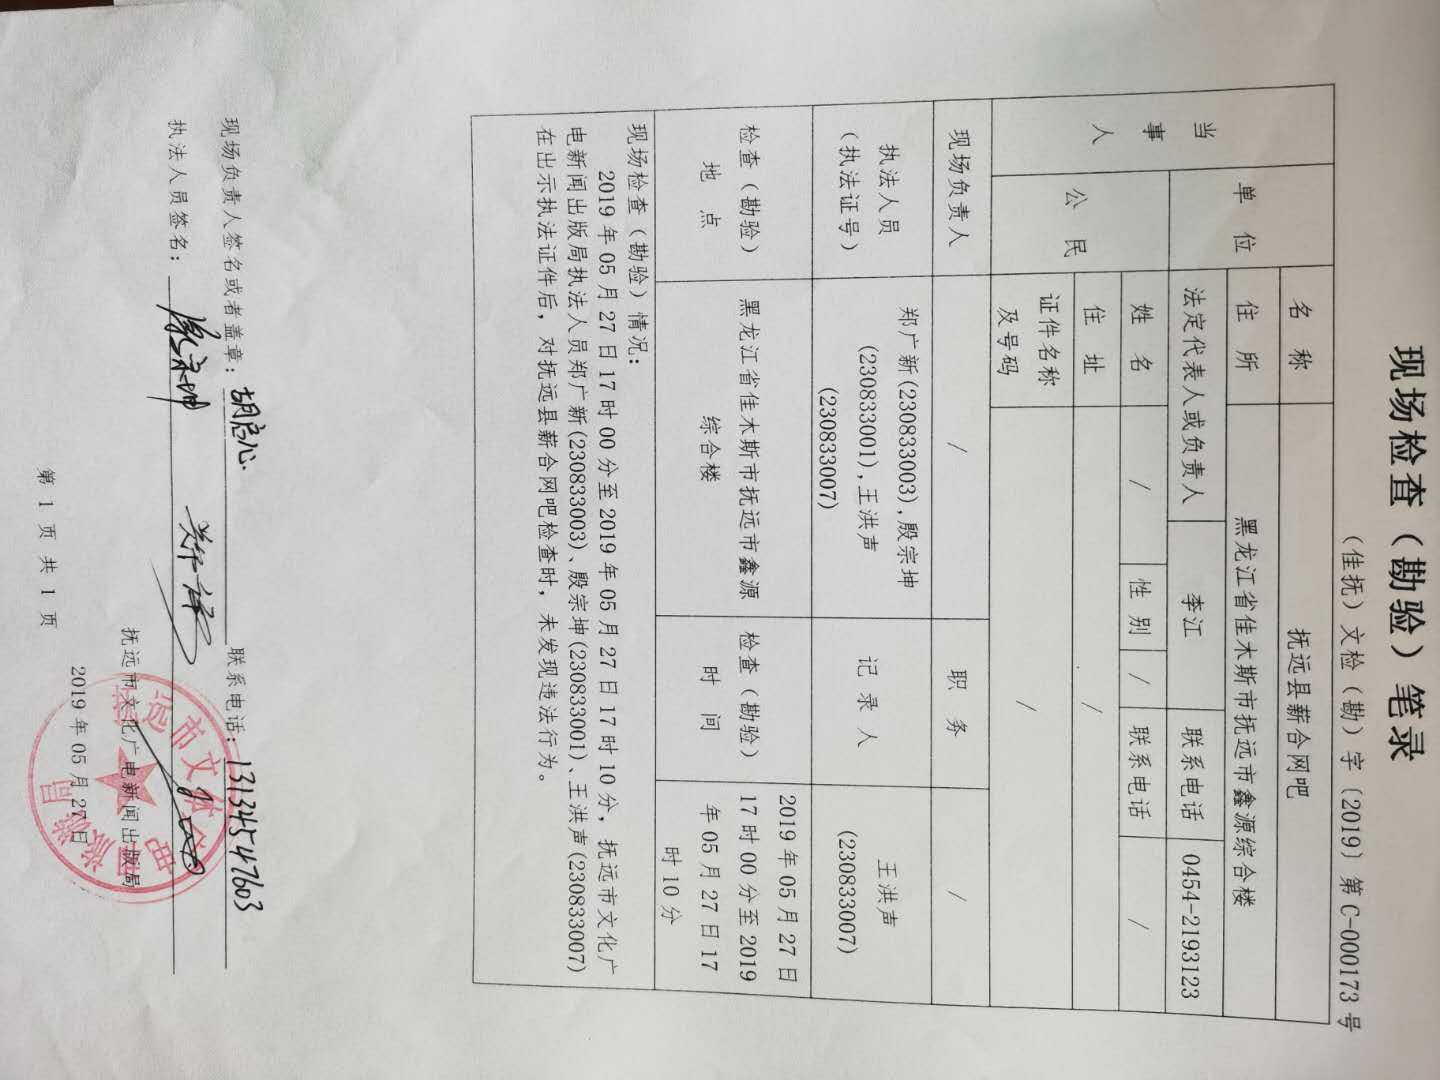 现场检查（勘验）笔录
（佳抚）文检（勘）字〔2019〕第 C-000173 号
当事人
单位
名称
抚远县薪合网吧
住所
黑龙江省佳木斯市抚远市鑫源综合楼
法定代表人或负责人
李江
联系电话
0454-2193123
公民
姓名
/
性别
/
联系电话
/
住址
/
证件名称
及号码
/
现场负责人
/
职务
/
执法人员
（执法证号）
郑广新(230833003),殷宗坤
(230833001),王洪声
(230833007)
记录人
王洪声
(230833007)
检查（勘验）
地点
黑龙江省佳木斯市抚远市鑫源
综合楼
检查（勘验）
时间
2019 年 05 月 27 日
17 时 00 分至 2019
年 05 月 27 日 17
时 10 分
现场检查（勘验）情况：
2019 年 05 月 27 日 17 时 00 分至 2019 年 05 月 27 日 17 时 10 分，抚远市文化广
电新闻出版局执法人员郑广新(230833003)、殷宗坤(230833001)、王洪声(230833007)
在出示执法证件后，对抚远县薪合网吧检查时，未发现违法行为。
现场负责人签名或者盖章：
联系电话：13134547603
执法人员签名：
抚远市文化广电新闻出版局
2019 年 05 月 27 日
第 1 页 共 1 页